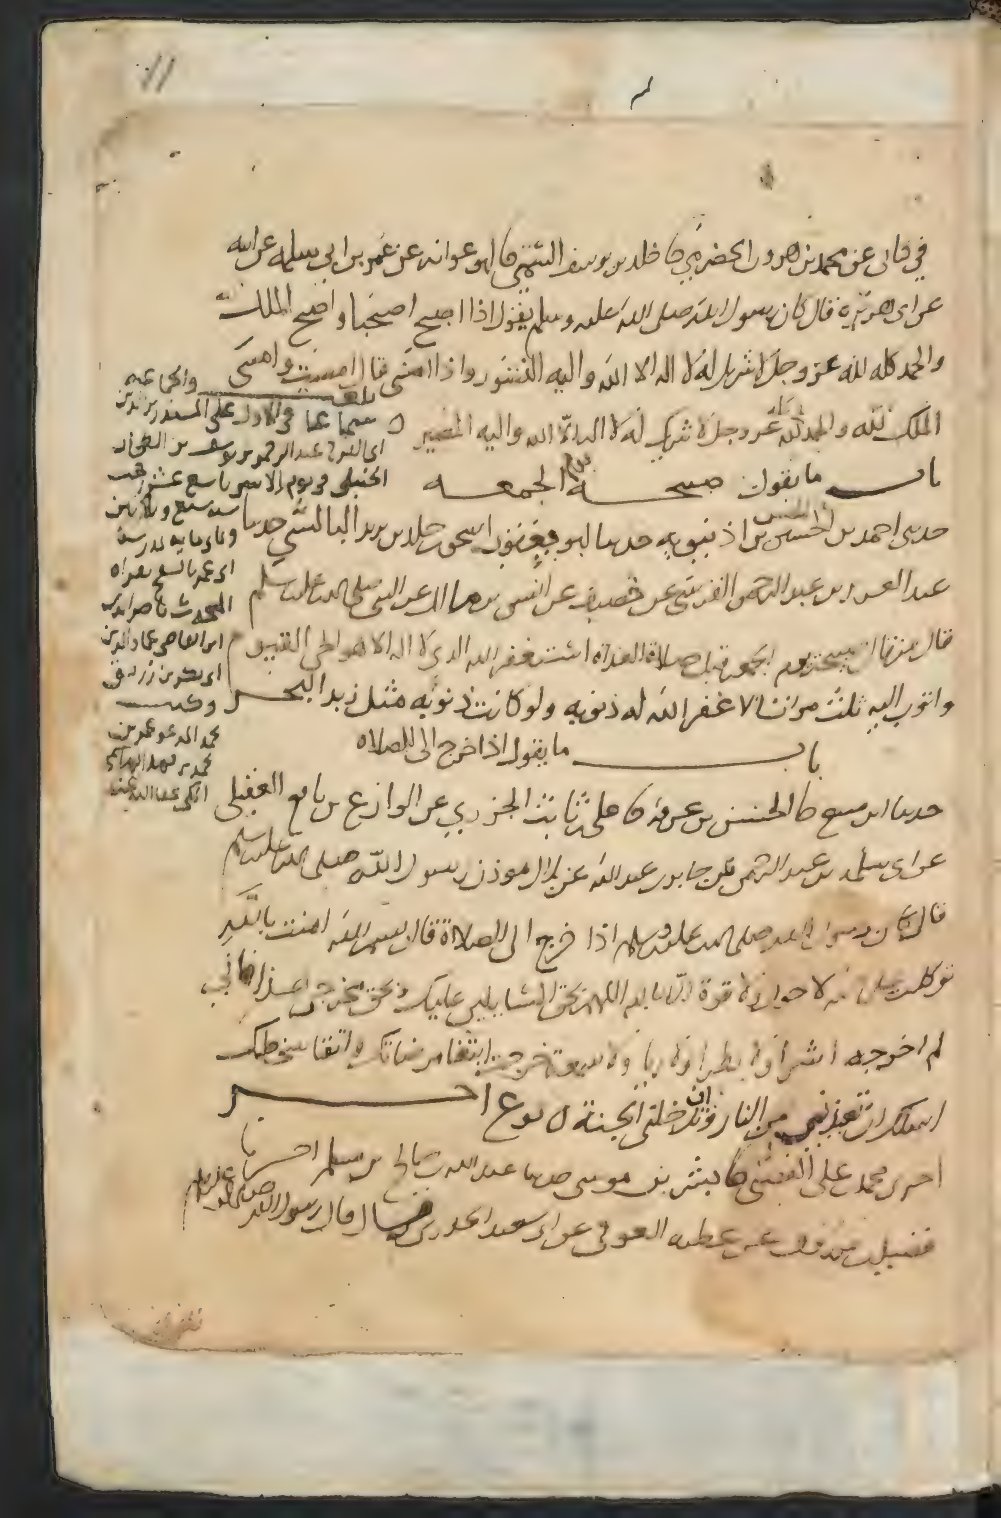 عن محمد بن هرون الحضرمي خالد بن يوسف السمتي ابو عوانه عن عمر بن ابي سلمه عن ابيه
عن ابي هريرة قال كان رسول الله صلى الله عليه وسلم يقول اذا اصبح اصبحنا واصبح الملك لله
والحمد كله لله عز وجل لا شريك له لا اله الا الله واليه النشور واذا امسى قال امسينا وامسى
الملك لله والحمد كله لله عز وجل لا شريك له لا اله الا الله واليه المصير
باب ما يقول صبيحة يوم الجمعه
حدثني احمد بن الحسن بن اذينويه حدثنا ابو يعقوب اسحق بن خلد بن يزيد البالسي حدثنا
عبد العزيز بن عبد الرحمن القرشي عن خصيف عن انس بن مالك عن النبي صلى الله عليه وسلم
قال من قال صبيحة يوم الجمعة قبل صلاة الغداة استغفر الله الذي لا اله الا هو الحي القيوم
واتوب اليه ثلث مرات الا غفر الله له ذنوبه ولو كانت ذنوبه مثل زبد البحر
باب ما يقول اذا خرج الى الصلاه
حدثنا ابن منيع الحسن بن عرفة علي بن ثابت الجزري عن الوازع بن نافع العقيلي
عن ابي سلمة بن عبد الرحمن عن جابر بن عبد الله عن بلال موذن رسول الله صلى الله عليه وسلم
قال كان رسول الله صلى الله عليه وسلم اذا خرج الى الصلاة قال بسم الله امنت بالله
توكلت على الله لا حول ولا قوة الا بالله اللهم بحق السايلين عليك وبحق مخرجي هذا فاني
لم اخرجه اشرا ولا بطرا ولا رياء ولا سمعة خرجت ابتغا مرضاتك واتقا سخطك
اسلك ان تعيذني من النار وان تدخلني الجنة نوع اخر
محمد علي بشر بن موسى حدثنا عبد الله بن صالح بن مسلم
فضيل بن مرزوق عن عطيه العوفي عن ابي سعيد الخدري قال قال رسول الله صلى الله عليه وسلم
بلغ
سماعا على
عبد الرحمن بن يوسف بن
الحنبلي في يوم الاثنين تاسع عشر رجب
سنه سبع وثلاثين
وثمان مايه بمدرسة
ابي عمر بالسفح بقراة
المحدث ناصر الدين
ابن القاضي عماد الدين
ابي بكر بن زريق
وكتب
محمد المدعو عمر بن
محمد بن فهد الهاشمي
المكي عفا الله عنه